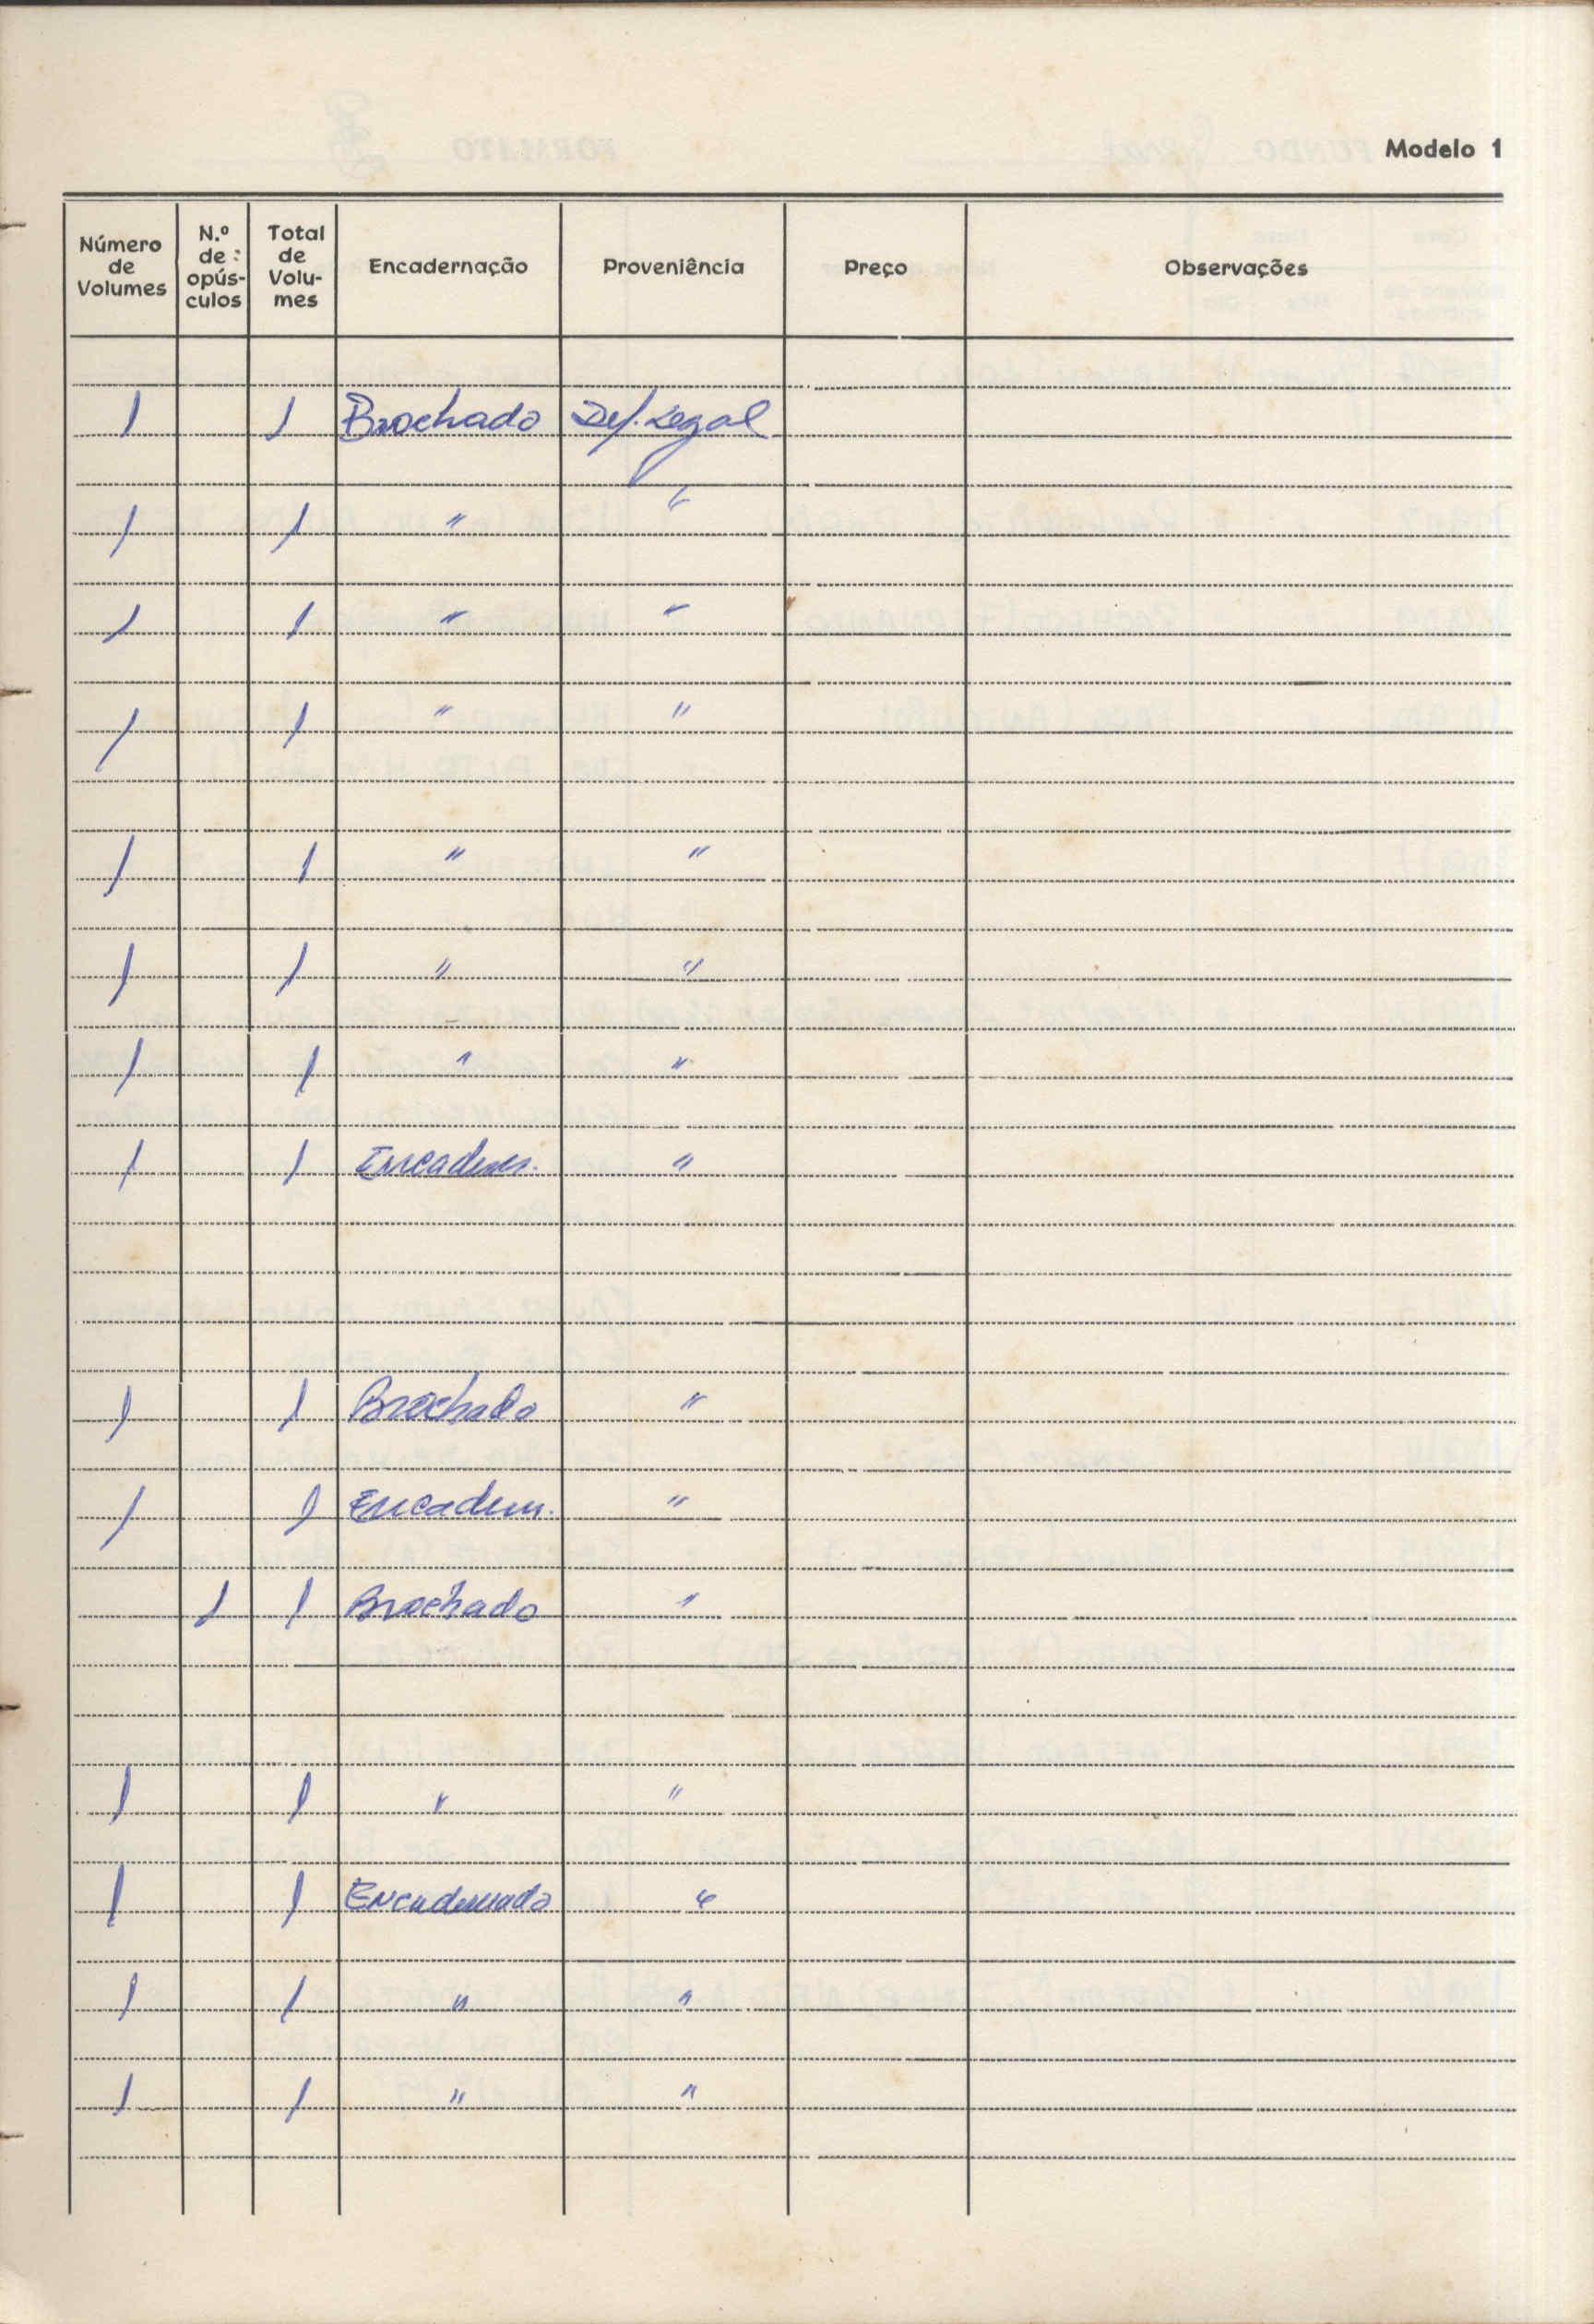 Modelo 1
Número de Volumes | N.º de opús-culos | Total de Volu-mes | Encadernação | Proveniência | Preço | Observações
1 | | 1 | Brochado | Dep. Legal
1 | | 1 | " | "
1 | | 1 | " | "
1 | | 1 | " | "
1 | | 1 | " | "
1 | | 1 | " | "
1 | | 1 | " | "
1 | | 1 | Encadern. | "
1 | | 1 | Brochado | "
1 | | 1 | Encadern. | "
| 1 | 1 | Brochado | "
1 | | 1 | " | "
1 | | 1 | Encadernado | "
1 | | 1 | " | "
1 | | 1 | " | "